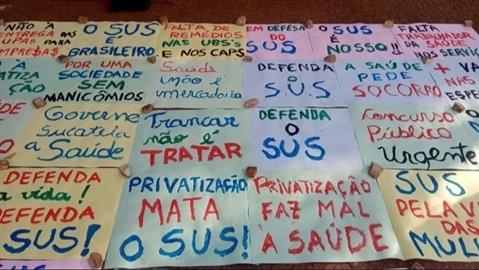 NÃO À
ENTREGA DAS
UPAS PARA
EMPRE$A$
O SUS
É
BRASILEIRO
FALTA DE
REMÉDIOS
NAS UBS's
E NOS CAPS
EM DEFESA
DO
SUS
O SUS
É
NOSSO!!
FALTA
TRABALHADOR
DA SAÚDE
NOS SERVIÇ
POR UMA
SOCIEDADE
SEM
MANICÔMIOS
Saúde
não é
mercadoria
DEFENDA
O
S.U.S
A SAÚDE
PEDE
SOCORRO
+ VA
NAS
ESPE
Governo
sucateia
a Saúde
Trancar
não é
TRATAR
DEFENDA
O
SUS
Concurso
Público
Urgente
DEFENDA
a vida!
DEFENDA
SUS!
PRIVATIZAÇÃO
MATA
O SUS!
PRIVATIZAÇÃO
FAZ MAL
À SAÚDE
SUS
PELA VI
DAS
MUL